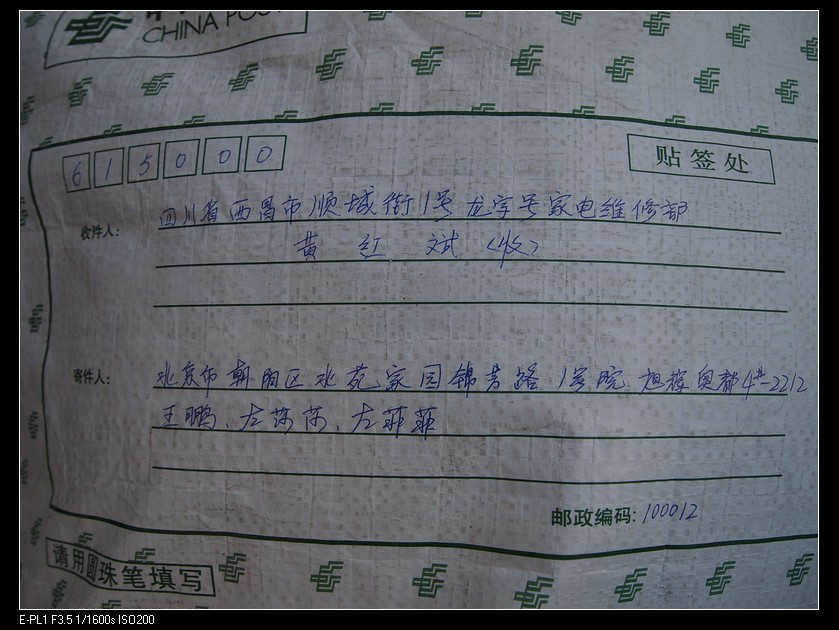 CHINA POST
615000
贴签处
收件人: 四川省西昌市顺城街1号龙字号家电维修部
黄红斌<收>
寄件人: 北京市朝阳区北苑家园锦芳路1号院旭辉奥都4#-2212
王鹏、左莎莎、左菲菲
邮政编码: 100012
请用圆珠笔填写
E-PL1 F3.5 1/1600s ISO200